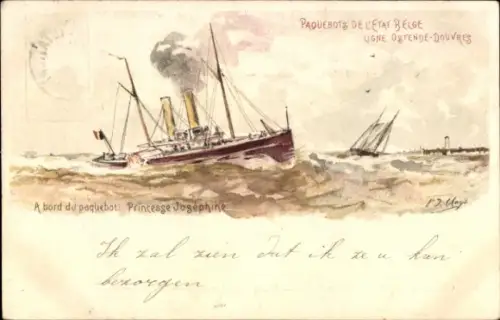 PAQUEBOTS DE L'ETAT BELGE
LIGNE OSTENDE-DOUVRES
A bord du paquebot: Princesse Joséphine
Ik zal zien dat ik ze u kan
bezorgen